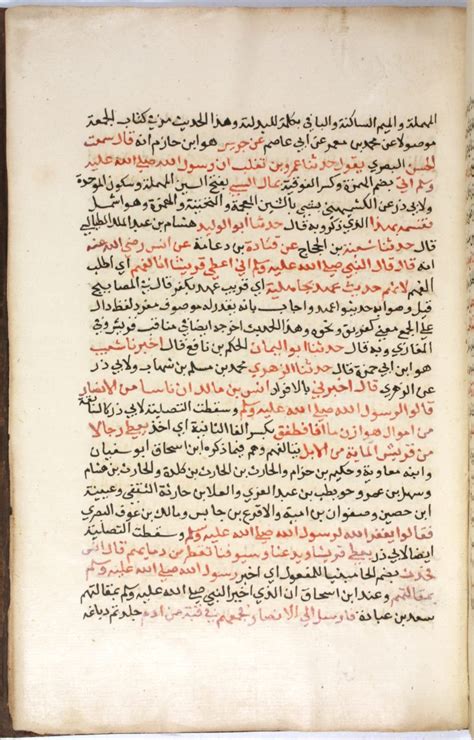 المهملة والميم الساكنة والباقي بكلمة للبدلية وهذا الحديث مر في كتاب الجمعة
موصولا عن محمد بن معمر عن ابي عاصم عن جرير هو ابن حازم انه قال سمعت
الحسن البصري يقول حدثنا عمرو بن تغلب ان رسول الله صلي الله عليه
وسلم اتي بضم الهمزة وكسر الفوقية بمال او بسبي بفتح السين المهملة وسكون الموحدة
ولابي ذر عن الكشميهني بشي بالشين المعجمة والتحتية والهمزة وهو اشمل
فقسمه بهذا الذي ذكر وبه قال حدثنا ابو الوليد هشام بن عبد الملك الطيالسي
قال حدثنا شعبة بن الحجاج عن قتادة بن دعامة عن انس رضي الله عنه
انه قال قال النبي صلي الله عليه وسلم اني اعطي قريشا اتالفهم اي اطلب
الفهم لانهم حديث عهد بجاهلية اي قريب عهد بكفر قال في المصابيح
قيل وصوابه حديثوا عهد واجاب بانه يقدر له موصوف مفرد لفظ دال
علي الجمع كفريق ونحوه وهذا الحديث اخرجه ايضا في مناقب قريش وفي
المغازي وبه قال حدثنا ابو اليمان الحكم بن نافع قال اخبرنا شعيب
هو ابن ابي حمزة قال حدثنا الزهري محمد بن مسلم بن شهاب ولابي ذر
عن الزهري قال اخبرني بالافراد انس بن مالك ان ناسا من الانصار
قالوا لرسول الله صلي الله عليه وسلم وسقطت التصلية لابي ذر
من اموال هوازن ما افا فطفق بكسر الفا الثانية اي اخذ يعطي رجالا
من قريش الماية من الابل يتالفهم وهم فيما ذكره ابن اسحاق ابو سفيان
وابنه معاوية وحكيم بن حزام والحارث بن الحارث بن كلدة والحارث بن هشام
وسهل بن عمرو وحويطب بن عبد العزي والعلا بن حارثة الثقفي وعيينة
ابن حصين وصفوان بن امية والاقرع بن حابس ومالك بن عوف النصري
فقالوا يغفر الله لرسول الله صلي الله عليه وسلم وسقطت التصلية
ايضا لابي ذر يعطي قريشا ويدعنا وسيوفنا تقطر من دمايهم قال انس
فحدث بضم الحا مبنيا للمفعول اي اخبر رسول الله صلي الله عليه وسلم
بمقالتهم وعند ابن اسحاق ان الذي اخبر النبي صلي الله عليه وسلم بمقالتهم
سعد بن عبادة فارسل الي الانصار فجمعهم في قبة من ادم جلد تم دباغه